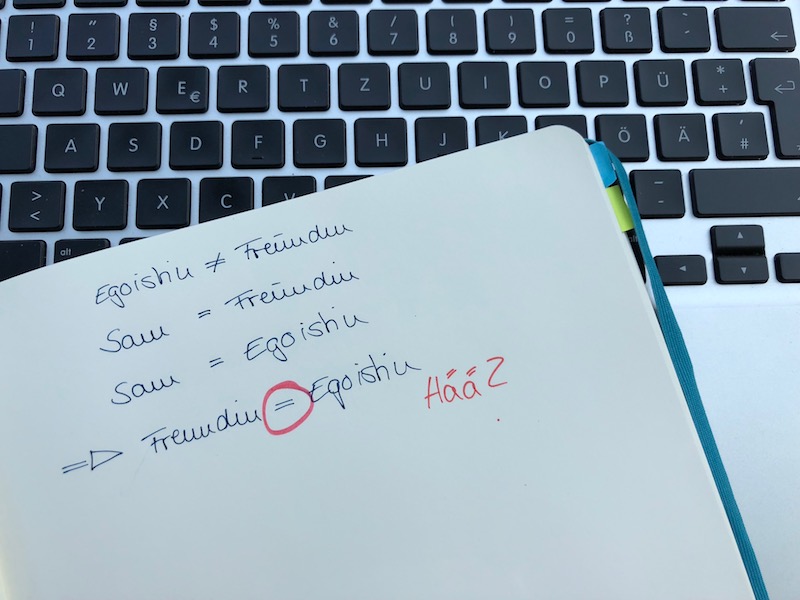 ! " § $ % & / ( ) = ? `
1 2 3 4 5 6 7 8 9 0 ß ´
Q W E € R T Z U I O P Ü * +
A S D F G H J K Ö Ä ' #
> < Y X C V _ -
alt
Egoistin ≠ Freundin
Sam = Freundin
Sam = Egoistin
⇒ Freundin = Egoistin Hää?